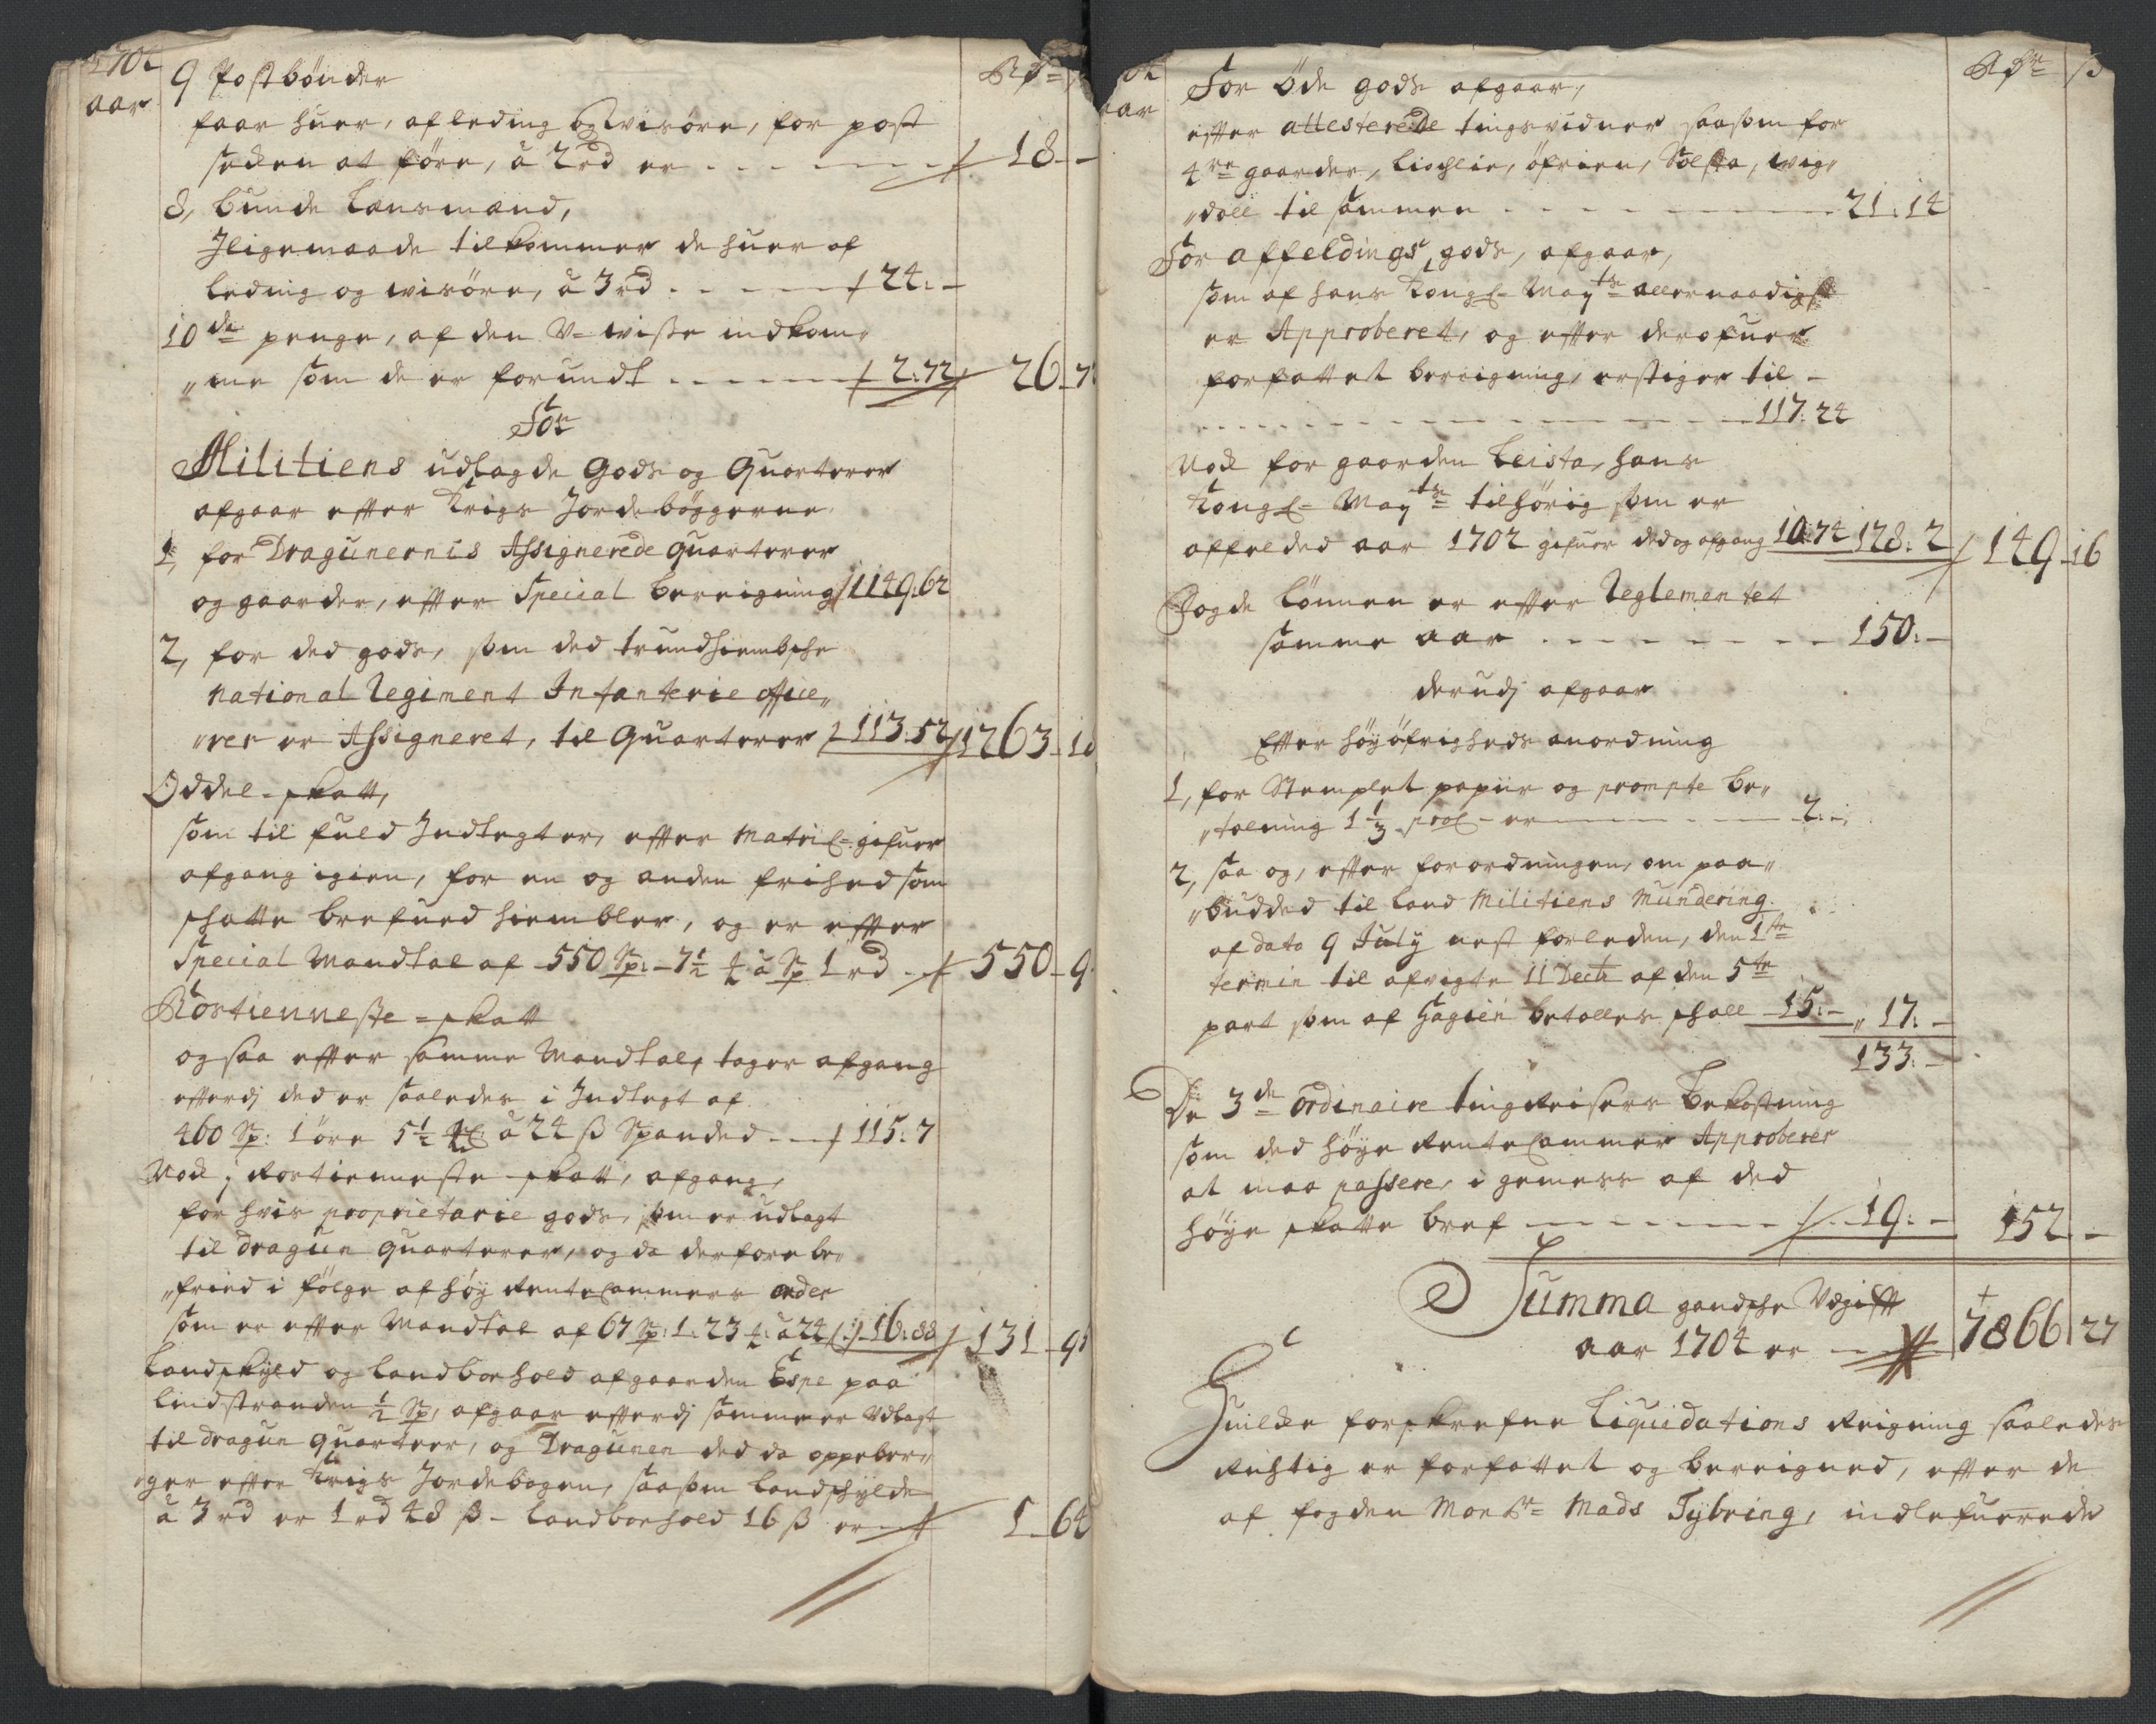 1704
aar
Rdr
9 Postbönder
faar huer, af leding og visöre, for post
secken at före, à 2 rd er 18 -
8, bunde Lensmænd,
Jligemaade tilkommer de huer af
leding og visöre, à 3 rd 24: -
10de penge, af den V-wisse indkom„
„me som de er forundt 2:72 26 7
For
Militiens udlagde Gods og Quarterer
afgaar efter Krigs Jordebøggerne
1, for Dragunernis Assignerede quarterer
og gaarder, efter Special bereigning 1149:62
2, for ded gods, som ded trundhiembsche
National Regiment Infanterie office„
„rer er Assigneret, til Quarterer 113:52 1263 - 18
Oddel-skatt,
som til fuld Indtegt er, efter Matricl: gifuer
afgang igien, for en og anden frihed som
skatte brefued hiembler, og er efter
Special Mandtal af 550 Sp: - 7½ à Sp 1 rd 550 - 9
Rostienneste-skatt
og saa efter samme Mandtal, tager afgang
efterdj ded er saaledes i Indtegt af
460 Sp: 1 öre 5½ à 24 ß Spanded 115:7
Nock j Rostienneste skatt, afgang,
for hvis proprietarie gods, som er udlagt
til dragun quarterer, og da derfore be„
„fried i fölge af höy Rente Cammers order
som er efter Mandtal af 67 Sp: 1:23 à 24 16:88 131 - 9
Landskyld og landborhold af gaarden Espe paa
Lindstranden ½ Sp, afgaar efterdj samme er Udlagt
til dragun quarteer, og Dragunen ded da oppeber„
„ger efter Krigs Jordebogen, saasom landschylde
à 3 rd er 1 rd 48 ß - landborhold 16 ß er 1 64
aar
Rdr ß
For öde gods afgaar,
efter attesterede tingsvidner saasom for
4re gaarder, Lischlie, öfrien, Solsta, wig„
„doll til sammen 21:14
For affeldings gods, afgaar,
som af hans Kongl: Mayts allernaadigst
er Approberet, og efter derofuer
forfattet bereigning, erstiger til -
117:24
Nock for gaarden Leista, hans
Kongl: Mayts tilhörig som er
affelded aar 1702 gifuer ded og afgang 10:74 128:2 149 16
Fogde Lönnen er efter Reglementet
samme aar 150: -
derudj afgaar
Efter höy öfrigheds anordning
1, for Stemplet papiir og prompte be„
„talning 1⅓ procl er 2: -
2, saa og, efter forordningen, om paa„
„budded til Land Militiens Mundering
af dato 9 July nest forleden, den 1ste
termin til afvigte 11 Decb af den 5te
part som af Gagien betalles skall 15: - 17: -
133: -
De 3de ordinaire tingreisers bekostning
som ded höye Rente Cammer Approberer
at maa passere, i gemess af ded
höye skatte bref 19: - 152 -
Summa gandsche Udgifft
aar 1704 er 7866 27
Huilcke forskrefne Liquidations Reigning saaledes
Richtig er forfattet og bereigned, efter de
af fogden Monsr Mads Tybring, indlefuerede